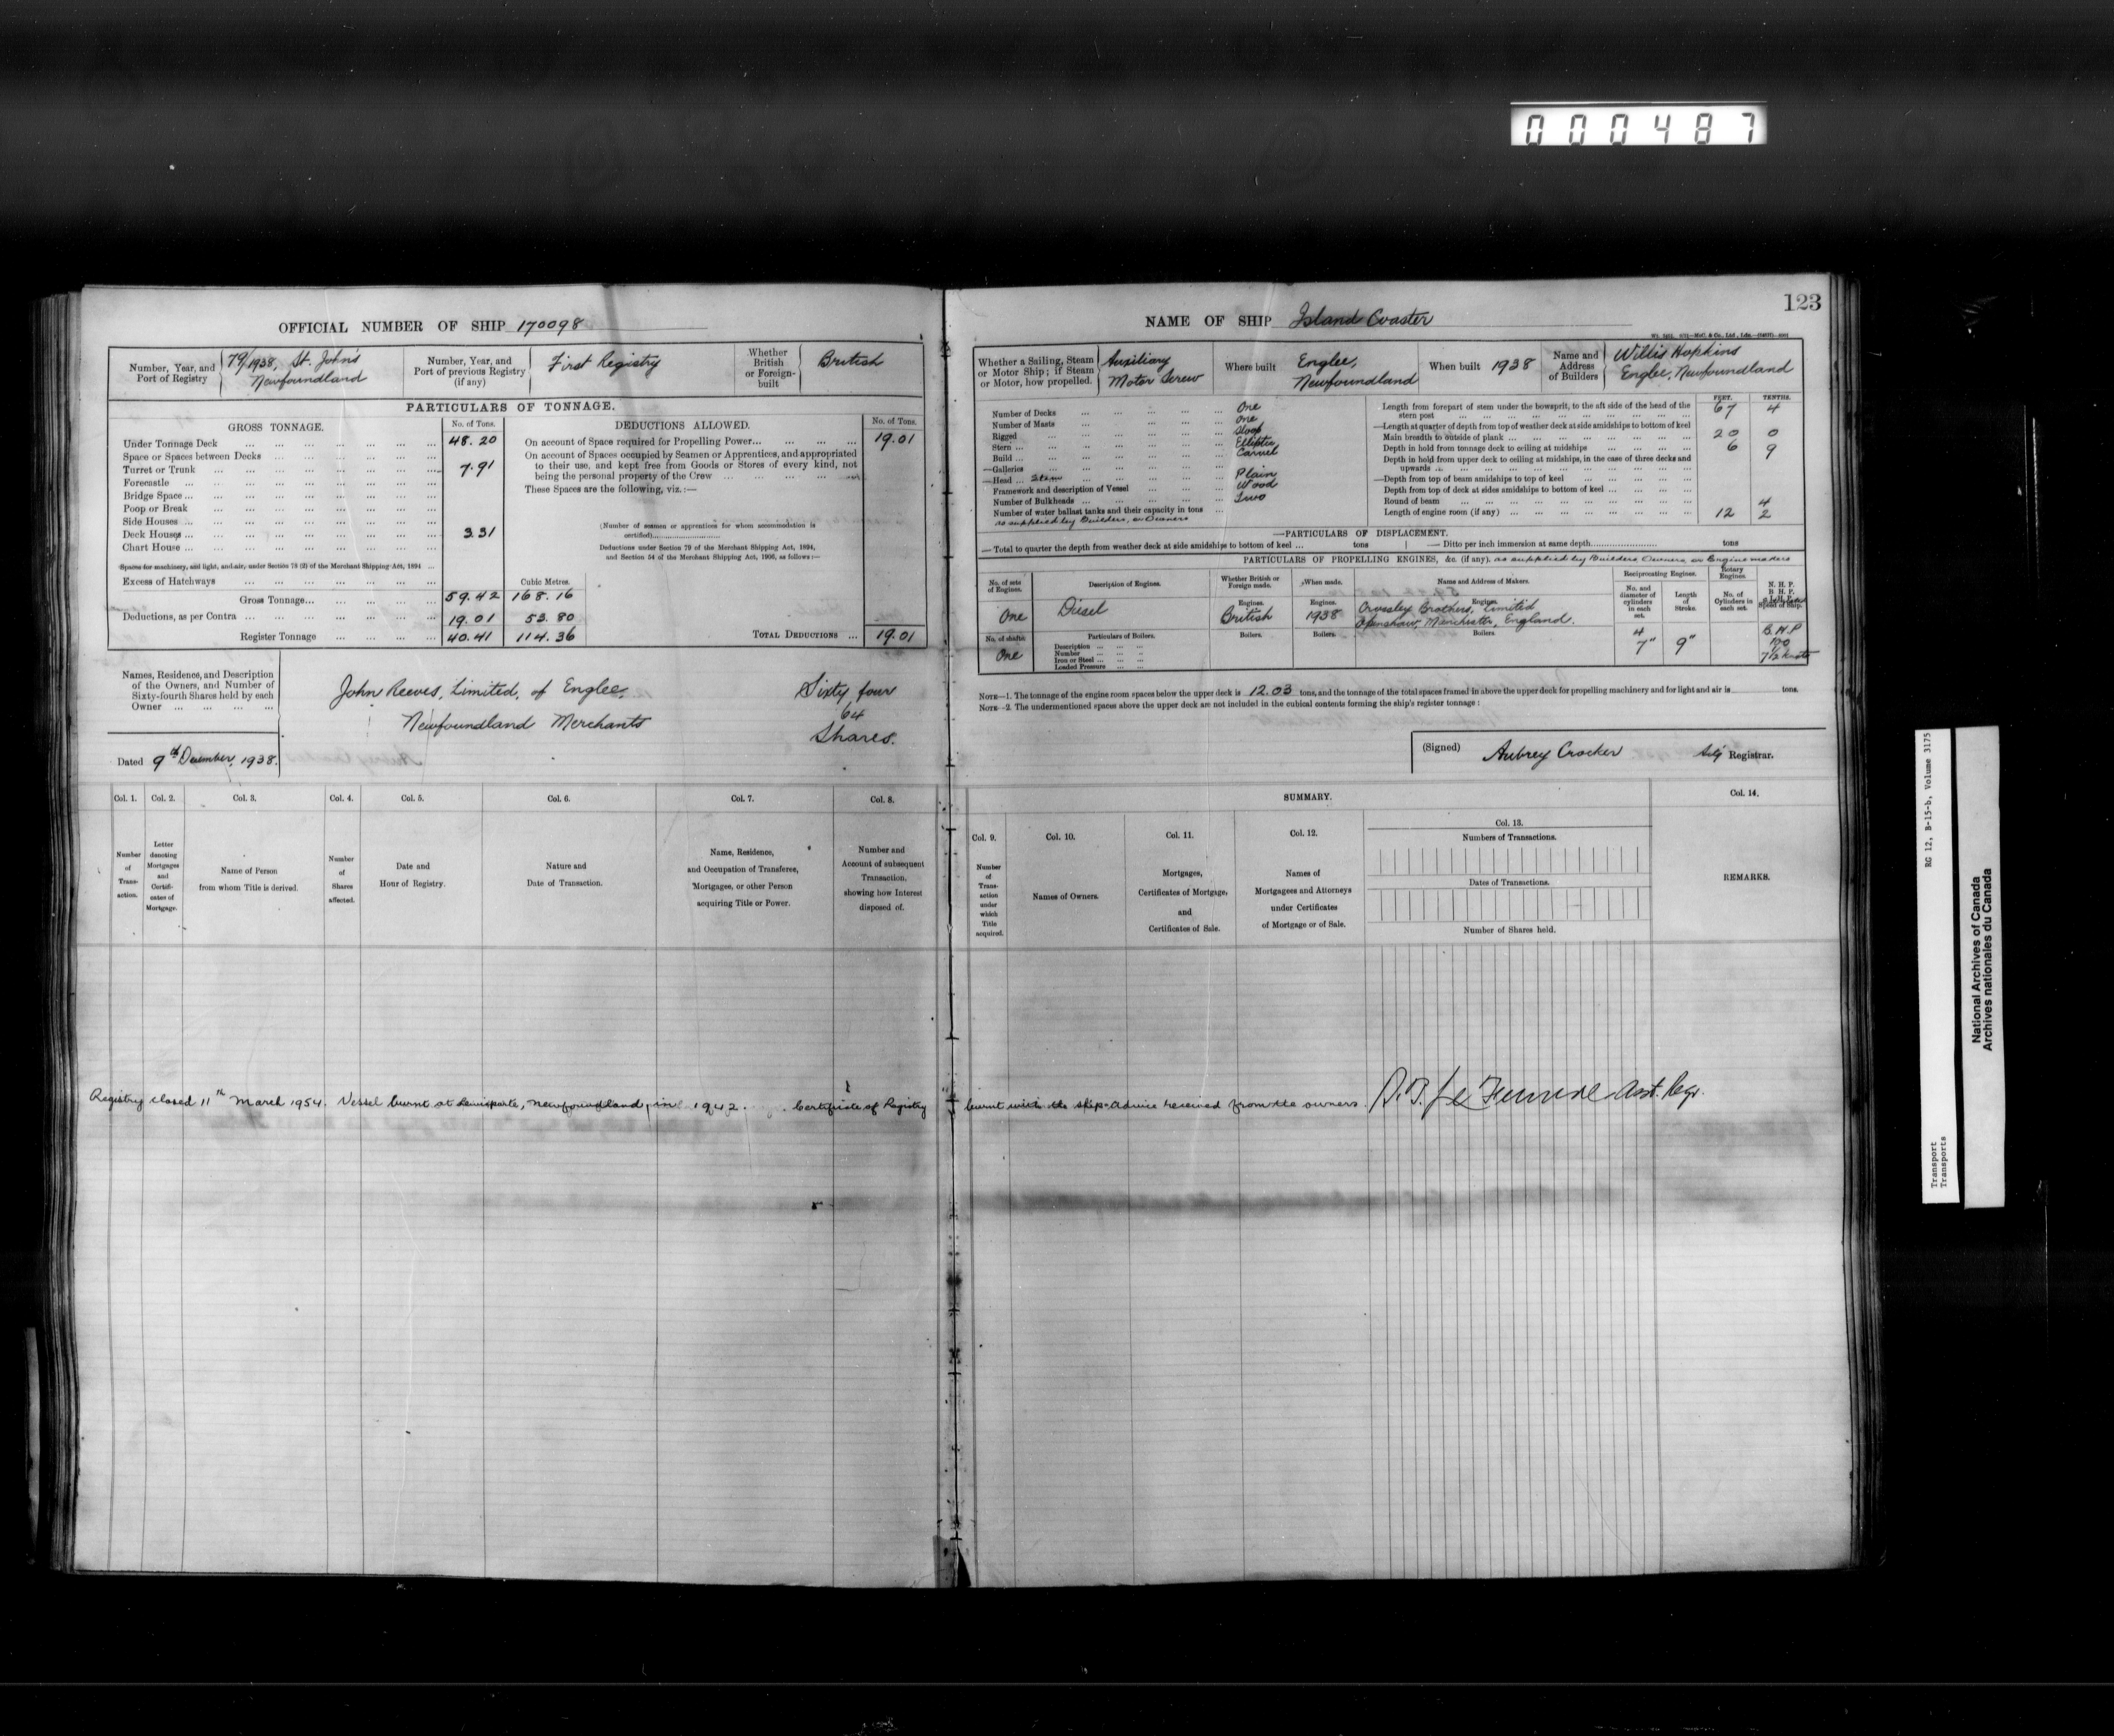 000487
123
OFFICIAL NUMBER OF SHIP 170098
Number, Year, and Port of Registry
79/1938, St. John's
Newfoundland
Number, Year, and Port of previous Registry (if any)
First Registry
Whether British or Foreign-built
British
PARTICULARS OF TONNAGE.
GROSS TONNAGE.
No. of Tons.
Under Tonnage Deck ... 48.20
Space or Spaces between Decks
Turret or Trunk ... 7.91
Forecastle
Bridge Space
Poop or Break
Side Houses
Deck Houses ... 3.31
Chart House
Spaces for machinery, and light, and air, under Section 78 (2) of the Merchant Shipping Act, 1894
Excess of Hatchways
Cubic Metres.
Gross Tonnage... 59.42 168.16
Deductions, as per Contra ... 19.01 53.80
Register Tonnage ... 40.41 114.36
DEDUCTIONS ALLOWED.
No. of Tons.
On account of Space required for Propelling Power... 19.01
On account of Spaces occupied by Seamen or Apprentices, and appropriated
to their use, and kept free from Goods or Stores of every kind, not
being the personal property of the Crew
These Spaces are the following, viz.:—
(Number of seamen or apprentices for whom accommodation is
certified)
Deductions under Section 79 of the Merchant Shipping Act, 1894,
and Section 54 of the Merchant Shipping Act, 1906, as follows:—
TOTAL DEDUCTIONS ... 19.01
Names, Residence, and Description
of the Owners, and Number of
Sixty-fourth Shares held by each
Owner
John Reeves, Limited, of Englee,
Newfoundland Merchants
Sixty four
64
Shares.
Dated 9th December, 1938.
Col. 1. Col. 2. Col. 3. Col. 4. Col. 5. Col. 6. Col. 7. Col. 8.
Number of Transaction.
Letter denoting Mortgages and Certificates of Mortgage.
Name of Person from whom Title is derived.
Number of Shares affected.
Date and Hour of Registry.
Nature and Date of Transaction.
Name, Residence, and Occupation of Transferee, Mortgagee, or other Person acquiring Title or Power.
Number and Account of subsequent Transaction, showing how Interest disposed of.
NAME OF SHIP Island Coaster
Whether a Sailing, Steam or Motor Ship; if Steam or Motor, how propelled.
Auxiliary
Motor Screw
Where built
Englee,
Newfoundland
When built 1938
Name and Address of Builders
Willis Hopkins
Englee, Newfoundland
Number of Decks ... One
Number of Masts ... One
Rigged ... Sloop
Stern ... Elliptic
Build ... Carvel
Galleries
Head ... Stem ... Plain
Framework and description of Vessel ... Wood
Number of Bulkheads ... Two
Number of water ballast tanks and their capacity in tons
as supplied by Builders, or Owners
FEET. TENTHS.
Length from forepart of stem under the bowsprit, to the aft side of the head of the
stern post ... 67 4
Length at quarter of depth from top of weather deck at side amidships to bottom of keel
Main breadth to outside of plank ... 20 0
Depth in hold from tonnage deck to ceiling at midships ... 6 9
Depth in hold from upper deck to ceiling at midships, in the case of three decks and
upwards
Depth from top of beam amidships to top of keel
Depth from top of deck at sides amidships to bottom of keel
Round of beam ... 4
Length of engine room (if any) ... 12 2
PARTICULARS OF DISPLACEMENT.
Total to quarter the depth from weather deck at side amidships to bottom of keel ... tons
Ditto per inch immersion at same depth tons
PARTICULARS OF PROPELLING ENGINES, &c. (if any), as supplied by Builders Owners or Engine makers
No. of sets of Engines.
Description of Engines.
Whether British or Foreign made.
When made.
Name and Address of Makers.
Reciprocating Engines.
Rotary Engines.
No. and diameter of cylinders in each set.
Length of Stroke.
No. of Cylinders in each set.
N. H. P.
B. H. P.
Speed of Ship.
Engines. Engines. Engines.
One Diesel British 1938 Crossley Brothers, Limited
Openshaw, Manchester, England.
No. of shafts.
One
Particulars of Boilers.
Boilers. Boilers. Boilers.
Description
Number
Iron or Steel
Loaded Pressure
4
7" 9"
B.H.P
7½ knots
NOTE—1. The tonnage of the engine room spaces below the upper deck is 12.03 tons, and the tonnage of the total spaces framed in above the upper deck for propelling machinery and for light and air is tons.
NOTE—2. The undermentioned spaces above the upper deck are not included in the cubical contents forming the ship's register tonnage:
(Signed) Aubrey Crocker Actg Registrar.
SUMMARY.
Col. 9. Col. 10. Col. 11. Col. 12. Col. 13. Col. 14.
Number of Transaction under which Title acquired.
Names of Owners.
Mortgages, Certificates of Mortgage, and Certificates of Sale.
Names of Mortgagees and Attorneys under Certificates of Mortgage or of Sale.
Numbers of Transactions.
Dates of Transactions.
Number of Shares held.
REMARKS.
Registry closed 11th March 1954. Vessel burnt at Lewisporte, Newfoundland, in 1942. Certificate of Registry burnt with the ship. Advice received from the owners. Asst. Regr.
RG 12, B-15-b, Volume 3175
Transport
Transports
National Archives of Canada
Archives nationales du Canada